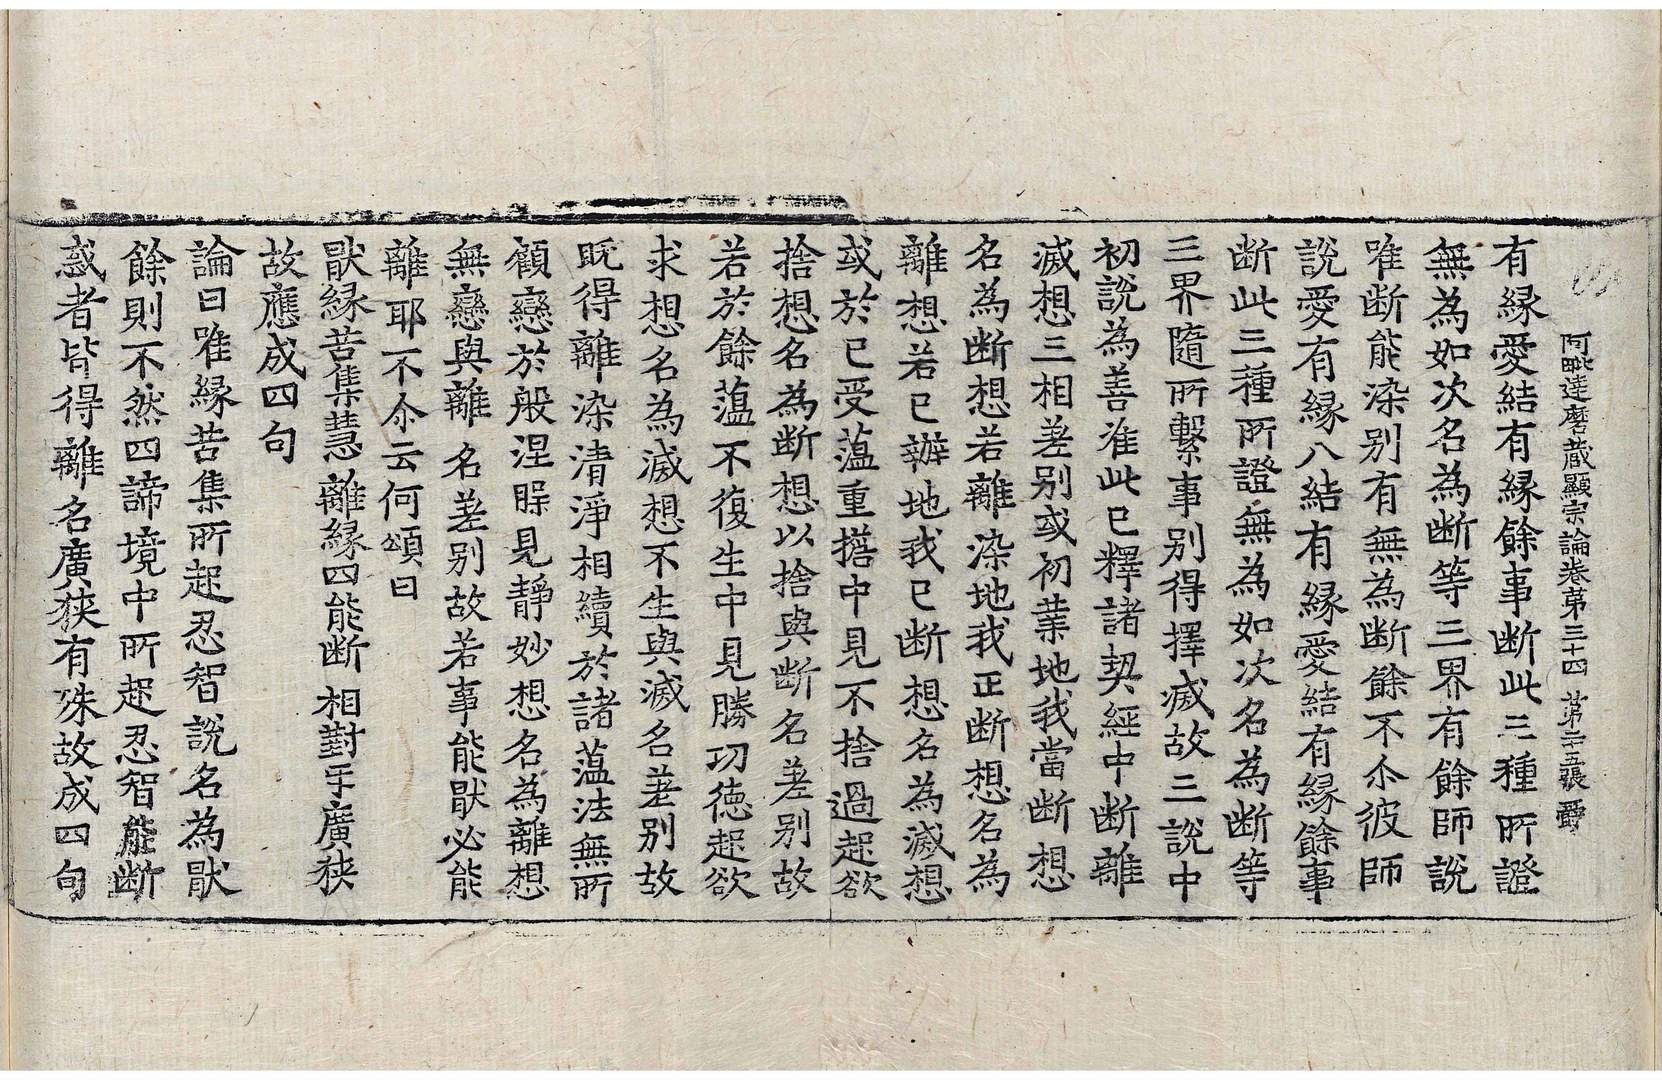 阿毗達磨蔵顯宗論卷第三十四 第二十五張 爵
有緣愛結有緣餘事断此三種所證
無為如次名為断等三界有餘師說
唯断能染别有無為断餘不尒彼師
說愛有緣八結有緣愛結有緣餘事
断此三種所證無為如次名為断等
三界隨所繫事别得擇滅故三說中
初說為善准此已釋諸契經中断離
滅想三相差别或初業地我當断想
名為断想若離染地我正断想名為
離想若已辦地我已断想名為滅想
或於已受蕰重擔中見不捨過起欲
捨想名為断想以捨與断名差别故
若於餘蕰不復生中見勝功徳起欲
求想名為滅想不生與滅名差别故
既得離染清淨相續於諸蕰法無所
顧戀於般涅槃見靜妙想名為離想
無戀與離名差别故若事能猒必能
離耶不尒云何頌曰
猒緣苦集慧 離緣四能断 相對互廣狹
故應成四句
論曰唯緣苦集所起忍智說名為猒
餘則不然四諦境中所起忍智能断
惑者皆得離名廣狹有殊故成四句